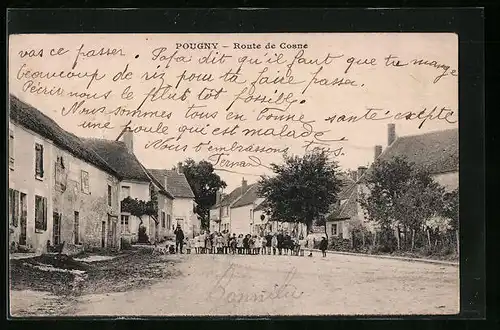 POUGNY — Route de Cosne
vas ce passer. Papa dit qu'il faut que tu mange
beaucoup de riz pour ta faire passer.
Écrire nous le plut tot possible.
Nous sommes tous en bonne santé excepte
une poule qui est malade.
Nous t'embrassons tous
Fernand